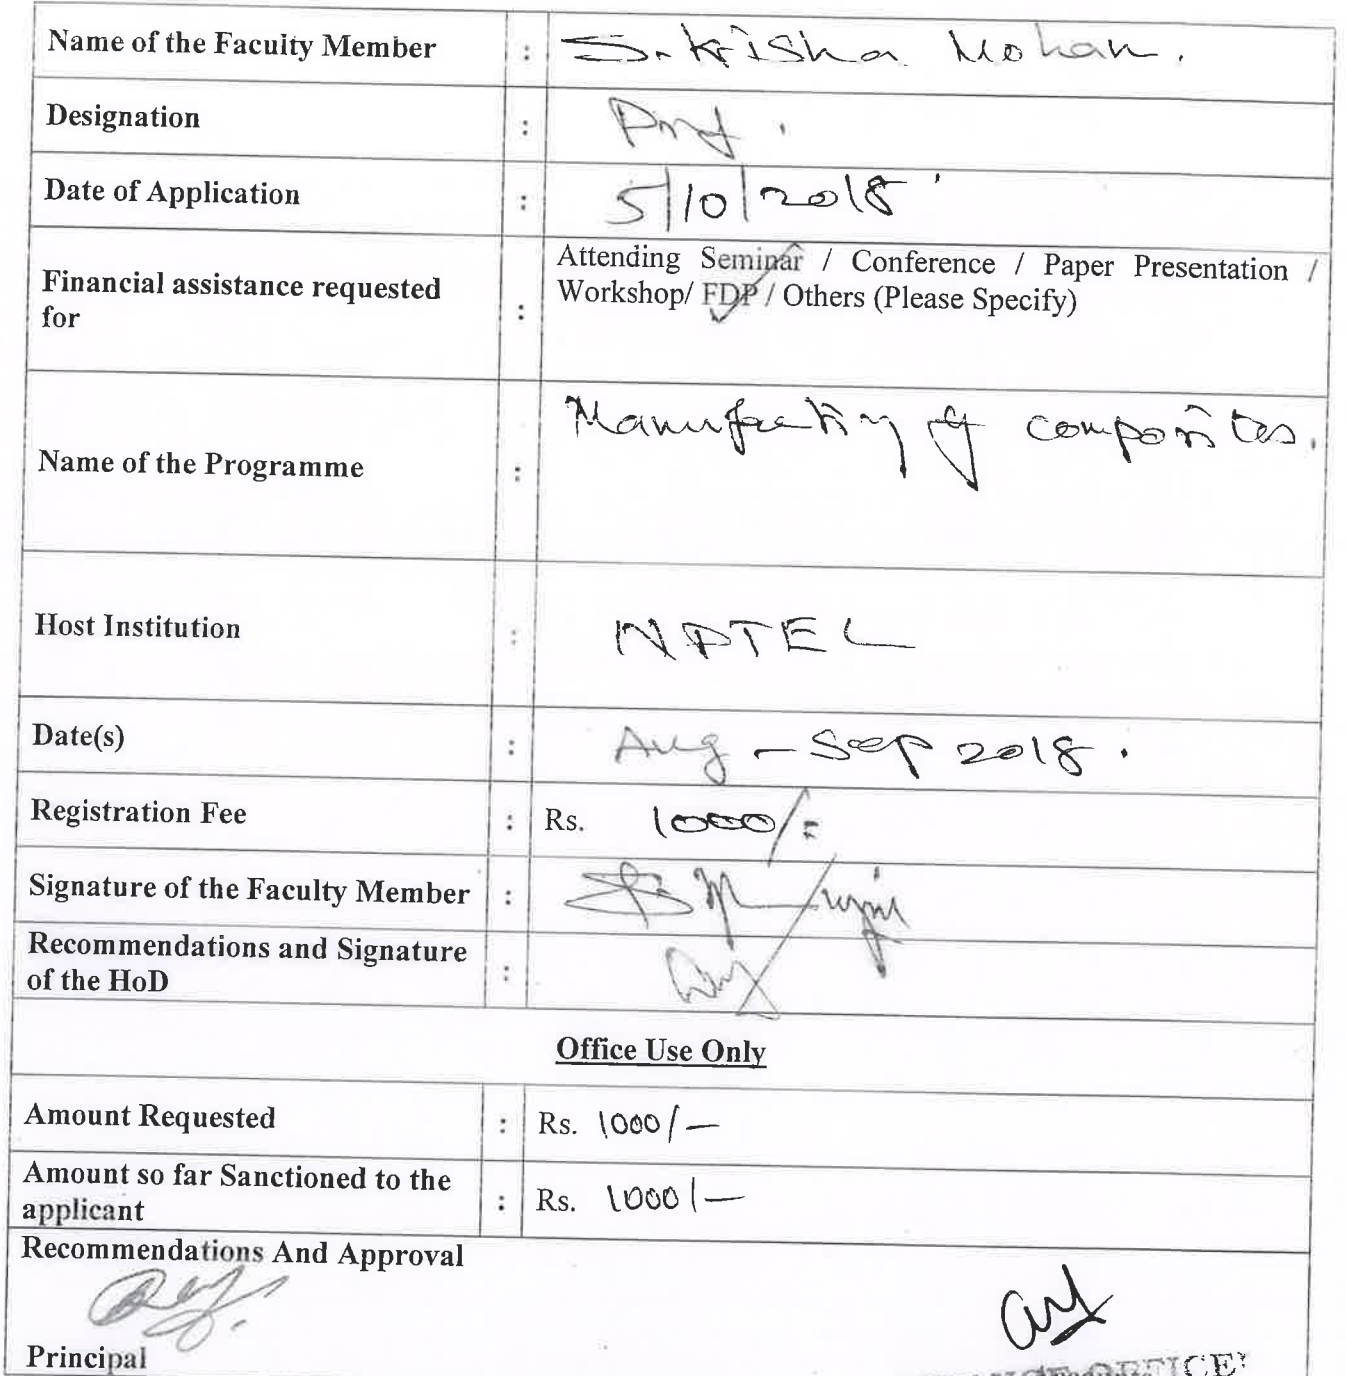 Name of the Faculty Member : S. Krisha Mohan.
Designation : Prof.
Date of Application : 5/10/2018
Financial assistance requested for : Attending Seminar / Conference / Paper Presentation /
Workshop/ FDP / Others (Please Specify)
Name of the Programme : Manufacting of composites.
Host Institution : NPTEL
Date(s) : Aug - Sep 2018.
Registration Fee : Rs. 1000/=
Signature of the Faculty Member :
Recommendations and Signature
of the HoD :
Office Use Only
Amount Requested : Rs. 1000/-
Amount so far Sanctioned to the
applicant : Rs. 1000/-
Recommendations And Approval
Principal